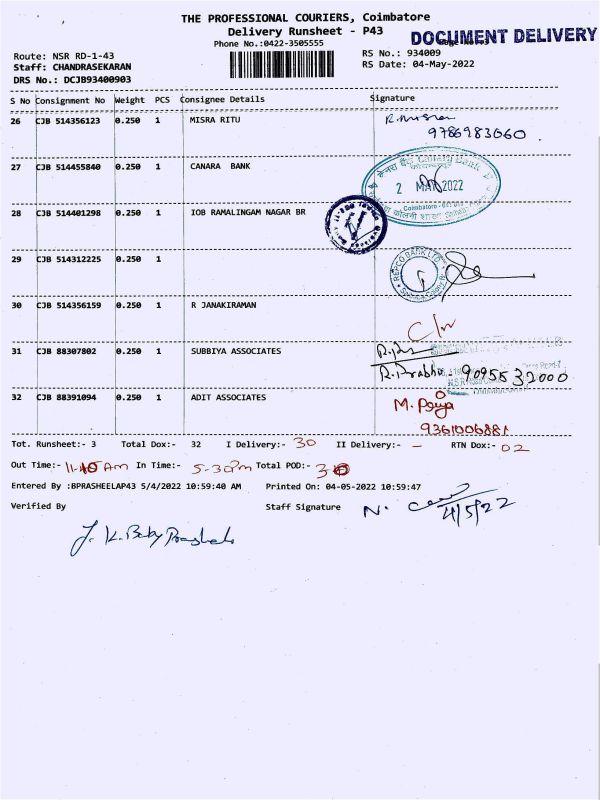 THE PROFESSIONAL COURIERS, Coimbatore
Delivery Runsheet - P43
DOCUMENT DELIVERY
Phone No.:0422-3505555
Route: NSR RD-1-43
RS No.: 934009
Staff: CHANDRASEKARAN
RS Date: 04-May-2022
DRS No.: DCJB93400903
S No Consignment No Weight PCS Consignee Details Signature
26 CJB 514356123 0.250 1 MISRA RITU R. Misra
9786983060
27 CJB 514455840 0.250 1 CANARA BANK
केनरा बैंक Canara Bank
2 MAY 2022
Coimbatore
28 CJB 514401298 0.250 1 IOB RAMALINGAM NAGAR BR
29 CJB 514312225 0.250 1
REPCO BANK LTD
30 CJB 514356159 0.250 1 R JANAKIRAMAN
C/r
31 CJB 88307802 0.250 1 SUBBIYA ASSOCIATES
R. Prabhu 9095532000
32 CJB 88391094 0.250 1 ADIT ASSOCIATES
M. Priya
9361006881
Tot. Runsheet:- 3 Total Dox:- 32 I Delivery:- 30 II Delivery:- - RTN Dox:- 02
Out Time:- 11-40 Am In Time:- 5-30pm Total POD:- 30
Entered By :BPRASHEELAP43 5/4/2022 10:59:40 AM Printed On: 04-05-2022 10:59:47
Verified By Staff Signature N.
4/5/22
J. K. Baby Prasheela